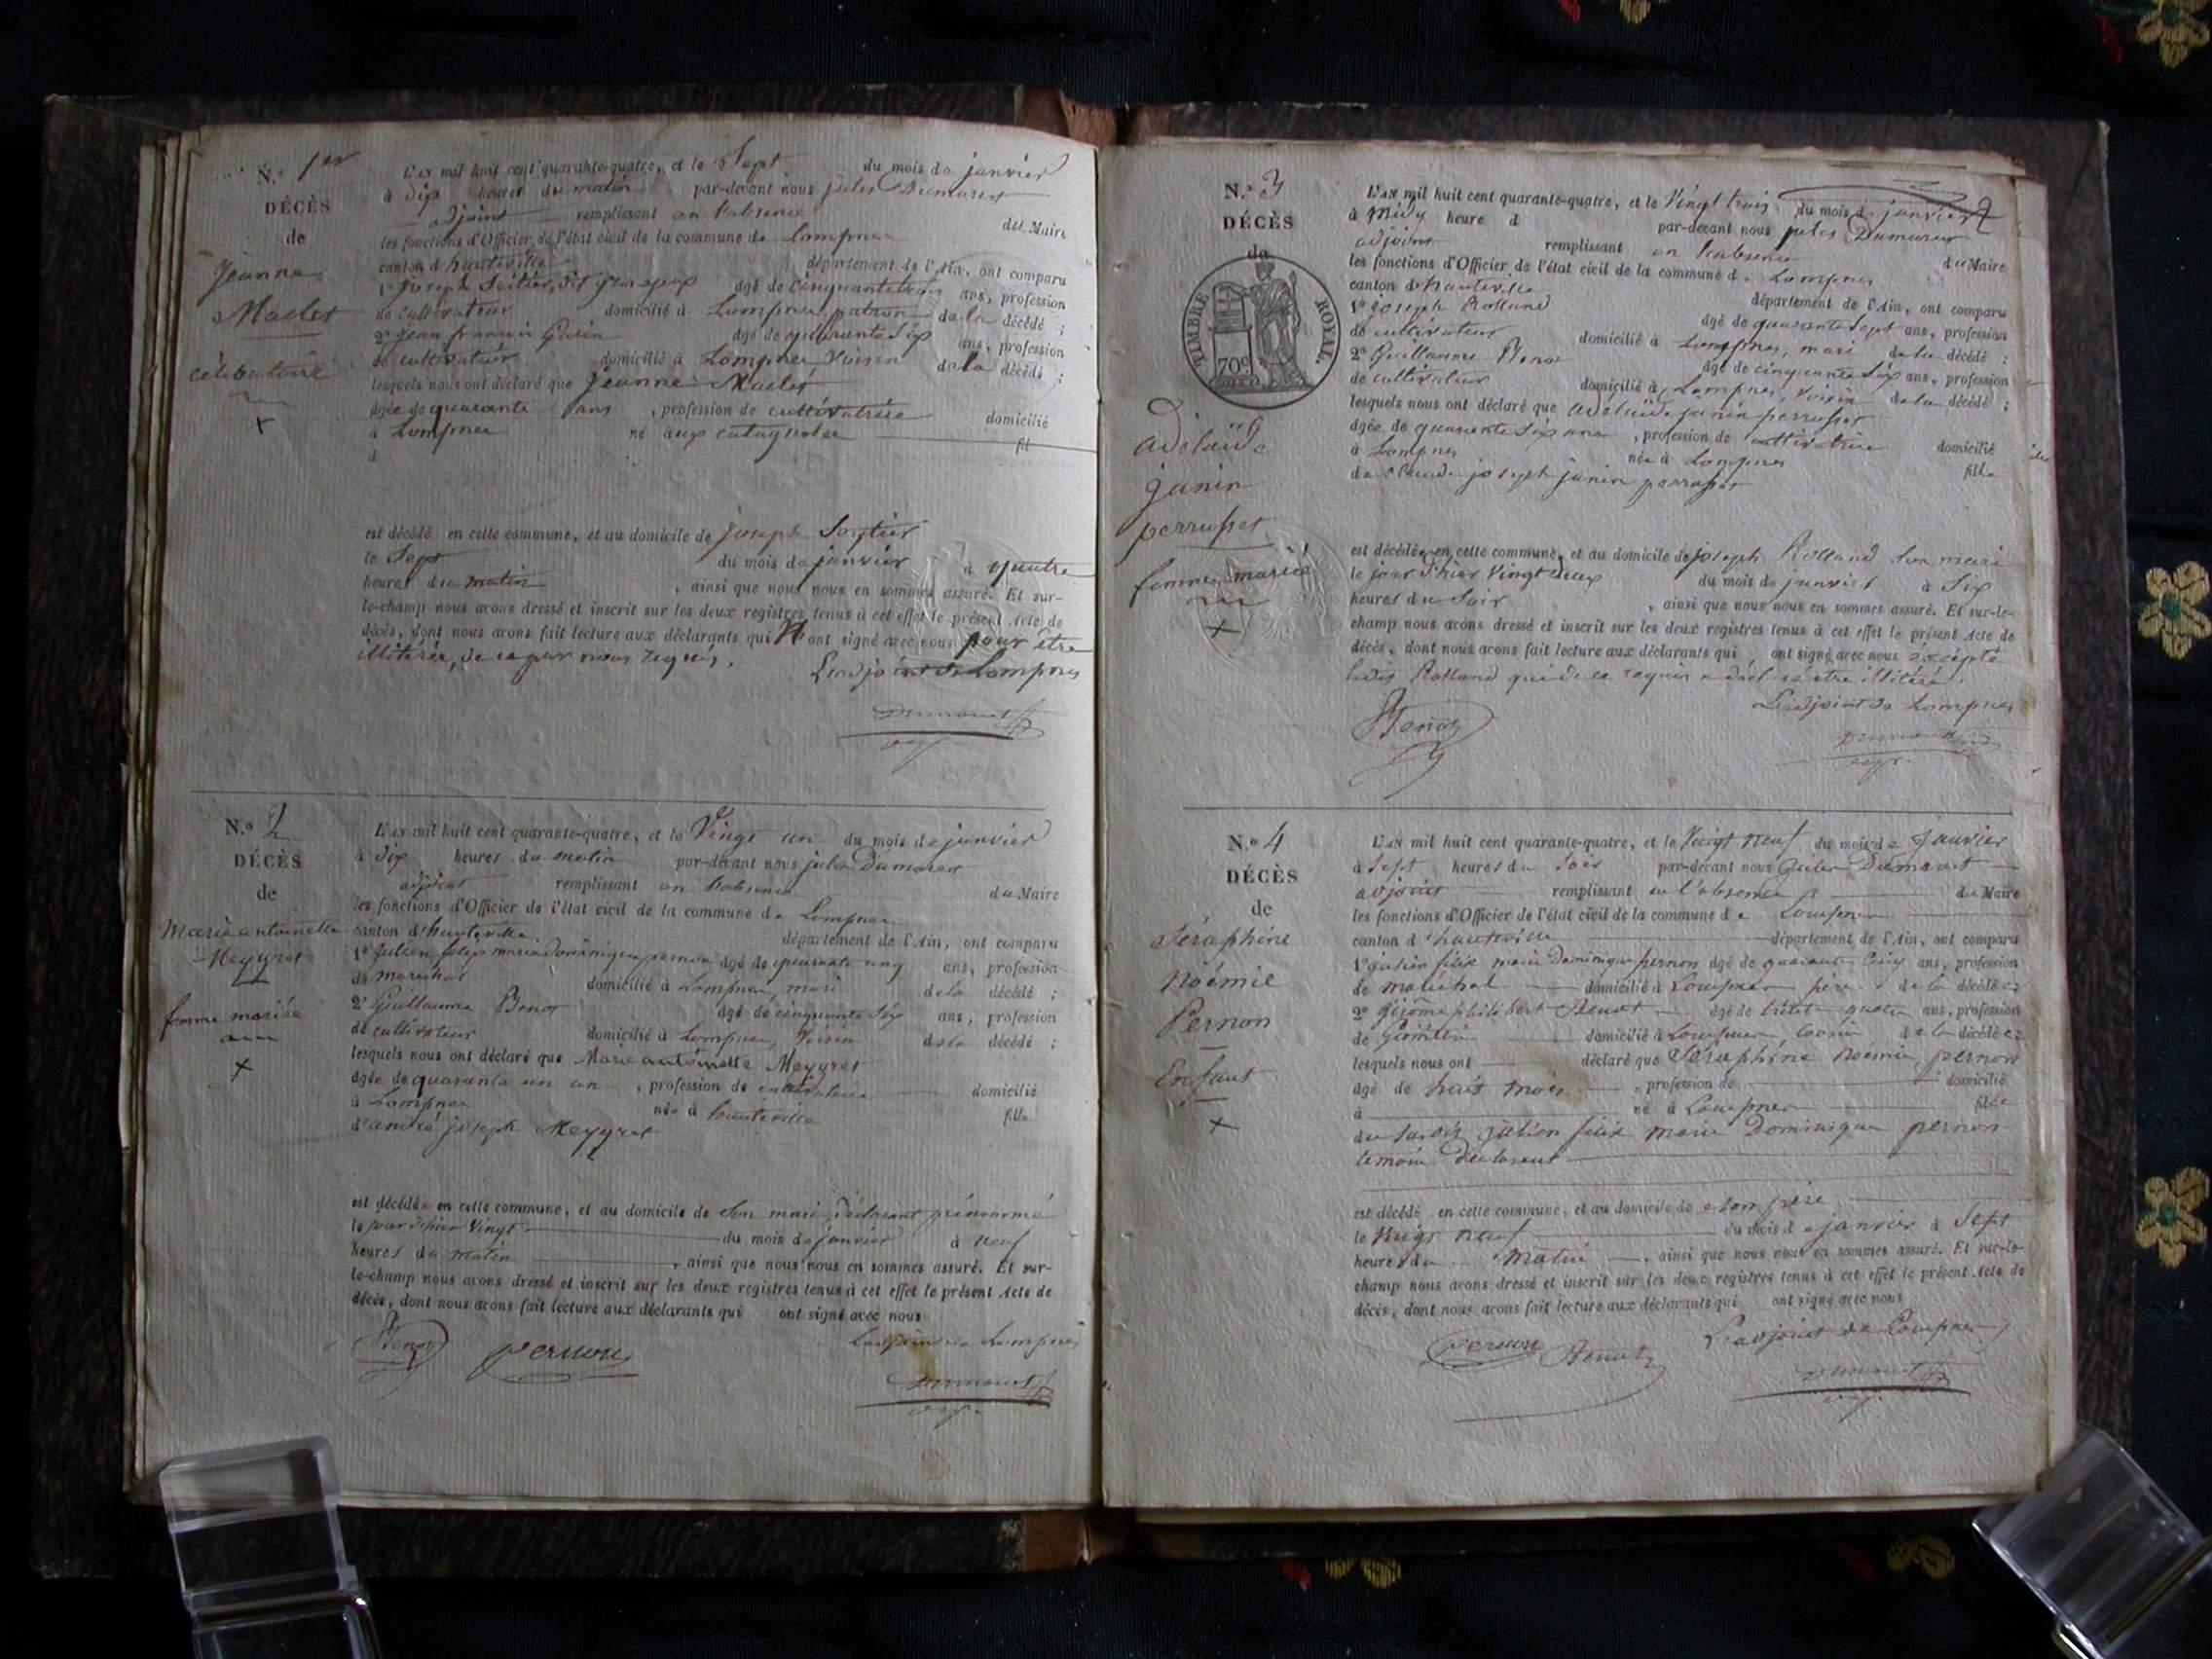 N.o 1er
DÉCÈS
de
Jeanne
Maclet
célibataire
L'AN mil huit cent quarante-quatre, et le Sept du mois de janvier
à dix heures du matin par-devant nous jules Dumarest
adjoint remplissant en l'absence du Maire
les fonctions d'Officier de l'état civil de la commune de Lompnes
canton d'hauteville département de l'Ain, ont comparu
1o Joseph dit âgé de cinquante trois ans, profession
de cultivateur domicilié à Lompnes patron de la décédé ;
2o jean françois Garin âgé de quarante Six ans, profession
de cultivateur domicilié à Lompnes Voisin de la décédé ;
lesquels nous ont déclaré que Jeanne Maclet
âgée de quarante ans , profession de cultivatrice domicilié
à Lompnes né aux catagnoles fil
d
est décédé en cette commune, et au domicile de Joseph
le Sept du mois de janvier à quatre
heures du matin , ainsi que nous nous en sommes assuré. Et sur-
le-champ nous avons dressé et inscrit sur les deux registres tenus à cet effet le présent Acte de
décès, dont nous avons fait lecture aux déclarants qui N'ont signé avec nous pour être
illitérés, de ce par nous requis.
L'adjoint de Lompnes
Dumarest
N.o 2
DÉCÈS
de
Marie antoinette
Meygret
femme mariée
L'AN mil huit cent quarante-quatre, et le Vingt un du mois de janvier
à dix heures du matin par-devant nous jules Dumarest
adjoint remplissant en l'absence du Maire
les fonctions d'Officier de l'état civil de la commune de Lompnes
canton d'hauteville département de l'Ain, ont comparu
1o Julien felix marie Dominique pernon âgé de quarante cinq ans, profession
de marechal domicilié à Lompnes, mari de la décédé ;
2o Guillaume Benot âgé de cinquante Six ans, profession
de cultivateur domicilié à Lompnes, Voisin de la décédé ;
lesquels nous ont déclaré que Marie antoinette Meygret
âgée de quarante un an , profession de cultivatrice domicilié
à Lompnes née à hauteville fille
d'andré joseph Meygret
est décédée en cette commune, et au domicile de Son mari, déclarant prénommé
le jour d'hier Vingt du mois de janvier à neuf
heures du matin , ainsi que nous nous en sommes assuré. Et sur-
le-champ nous avons dressé et inscrit sur les deux registres tenus à cet effet le présent Acte de
décès, dont nous avons fait lecture aux déclarants qui ont signé avec nous
L'adjoint de Lompnes
Benot Pernon
Dumarest
2
N.o 3
DÉCÈS
de
TIMBRE ROYAL.
70c.
adelaïde
janin
perrusset
femme mariée
L'AN mil huit cent quarante-quatre, et le Vingt trois du mois de janvier
à midy heure d par-devant nous jules Dumarest
adjoint remplissant en l'absence du Maire
les fonctions d'Officier de l'état civil de la commune de Lompnes
canton d'hauteville département de l'Ain, ont comparu
1o joseph Rolland âgé de quarante Sept ans, profession
de cultivateur domicilié à Lompnes, mari de la décédé ;
2o Guillaume Benot âgé de cinquante Six ans, profession
de cultivateur domicilié à Lompnes, Voisin de la décédé ;
lesquels nous ont déclaré que adelaïde janin perrusset
âgée de quarante Six ans , profession de cultivatrice domicilié
à Lompnes née à Lompnes fille
de Claude joseph janin perrusset
est décédée en cette commune, et au domicile de joseph Rolland Son mari
le jour d'hier Vingt deux du mois de janvier à Six
heures du Soir , ainsi que nous nous en sommes assuré. Et sur-le-
champ nous avons dressé et inscrit sur les deux registres tenus à cet effet le présent Acte de
décès, dont nous avons fait lecture aux déclarants qui ont signé avec nous éxcépté
ledit Rolland qui de ce requis a déclaré être illitéré.
L'adjoint de Lompnes
Benot
Dumarest
N.o 4
DÉCÈS
de
Séraphine
Noémie
Pernon
Enfant
L'AN mil huit cent quarante-quatre, et le Vingt neuf du mois de janvier
à Sept heures du Soir par-devant nous Jules Dumarest
adjoint remplissant en l'absence du Maire
les fonctions d'Officier de l'état civil de la commune de Lompnes
canton d'hauteville département de l'Ain, ont comparu
1o julien félix marie Dominique pernon âgé de quarante Cinq ans, profession
de maréchal domicilié à Lompnes père de la décédée ;
2o jérôme philibert Benot âgé de trente quatre ans, profession
de domicilié à Lompnes de la décédée ;
lesquels nous ont déclaré que Séraphine Noémie pernon
âgé de trois mois , profession de domicilié
à né à Lompnes fille
du Susdit julien félix marie Dominique pernon
témoin déclarant
est décédé en cette commune, et au domicile de Son père
le Vingt neuf du mois de janvier à Sept
heures du matin , ainsi que nous nous en sommes assuré. Et sur-le-
champ nous avons dressé et inscrit sur les deux registres tenus à cet effet le présent Acte de
décès, dont nous avons fait lecture aux déclarants qui ont signé avec nous
L'adjoint de Lompnes
Pernon Benot
Dumarest